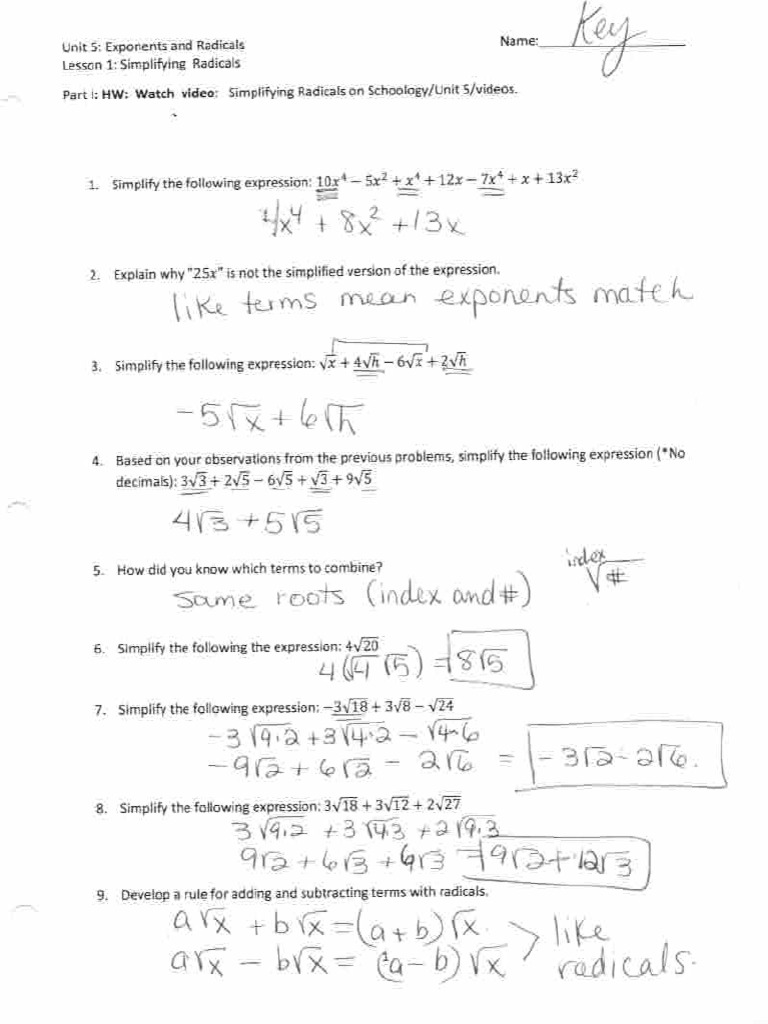 Unit 5: Exponents and Radicals
Name: Key
Lesson 1: Simplifying Radicals
Part I: HW: Watch video: Simplifying Radicals on Schoology/Unit 5/videos.
1. Simplify the following expression: 10x⁴ – 5x² + x⁴ + 12x – 7x⁴ + x + 13x²
4x⁴ + 8x² + 13x
2. Explain why "25x" is not the simplified version of the expression.
like terms mean exponents match
3. Simplify the following expression: √x + 4√h – 6√x + 2√h
-5√x + 6√h
4. Based on your observations from the previous problems, simplify the following expression (*No
decimals): 3√3 + 2√5 – 6√5 + √3 + 9√5
4√3 + 5√5
5. How did you know which terms to combine?
index
√#
Same roots (index and #)
6. Simplify the following the expression: 4√20
4(√4 √5) = 8√5
7. Simplify the following expression: –3√18 + 3√8 – √24
-3√9·2 + 3√4·2 - √4·6
-9√2 + 6√2 - 2√6 = -3√2 - 2√6.
8. Simplify the following expression: 3√18 + 3√12 + 2√27
3√9·2 + 3√4·3 + 2√9·3
9√2 + 6√3 + 6√3 = 9√2 + 12√3
9. Develop a rule for adding and subtracting terms with radicals.
a√x + b√x = (a + b)√x. > like
a√x - b√x = (a - b)√x radicals.